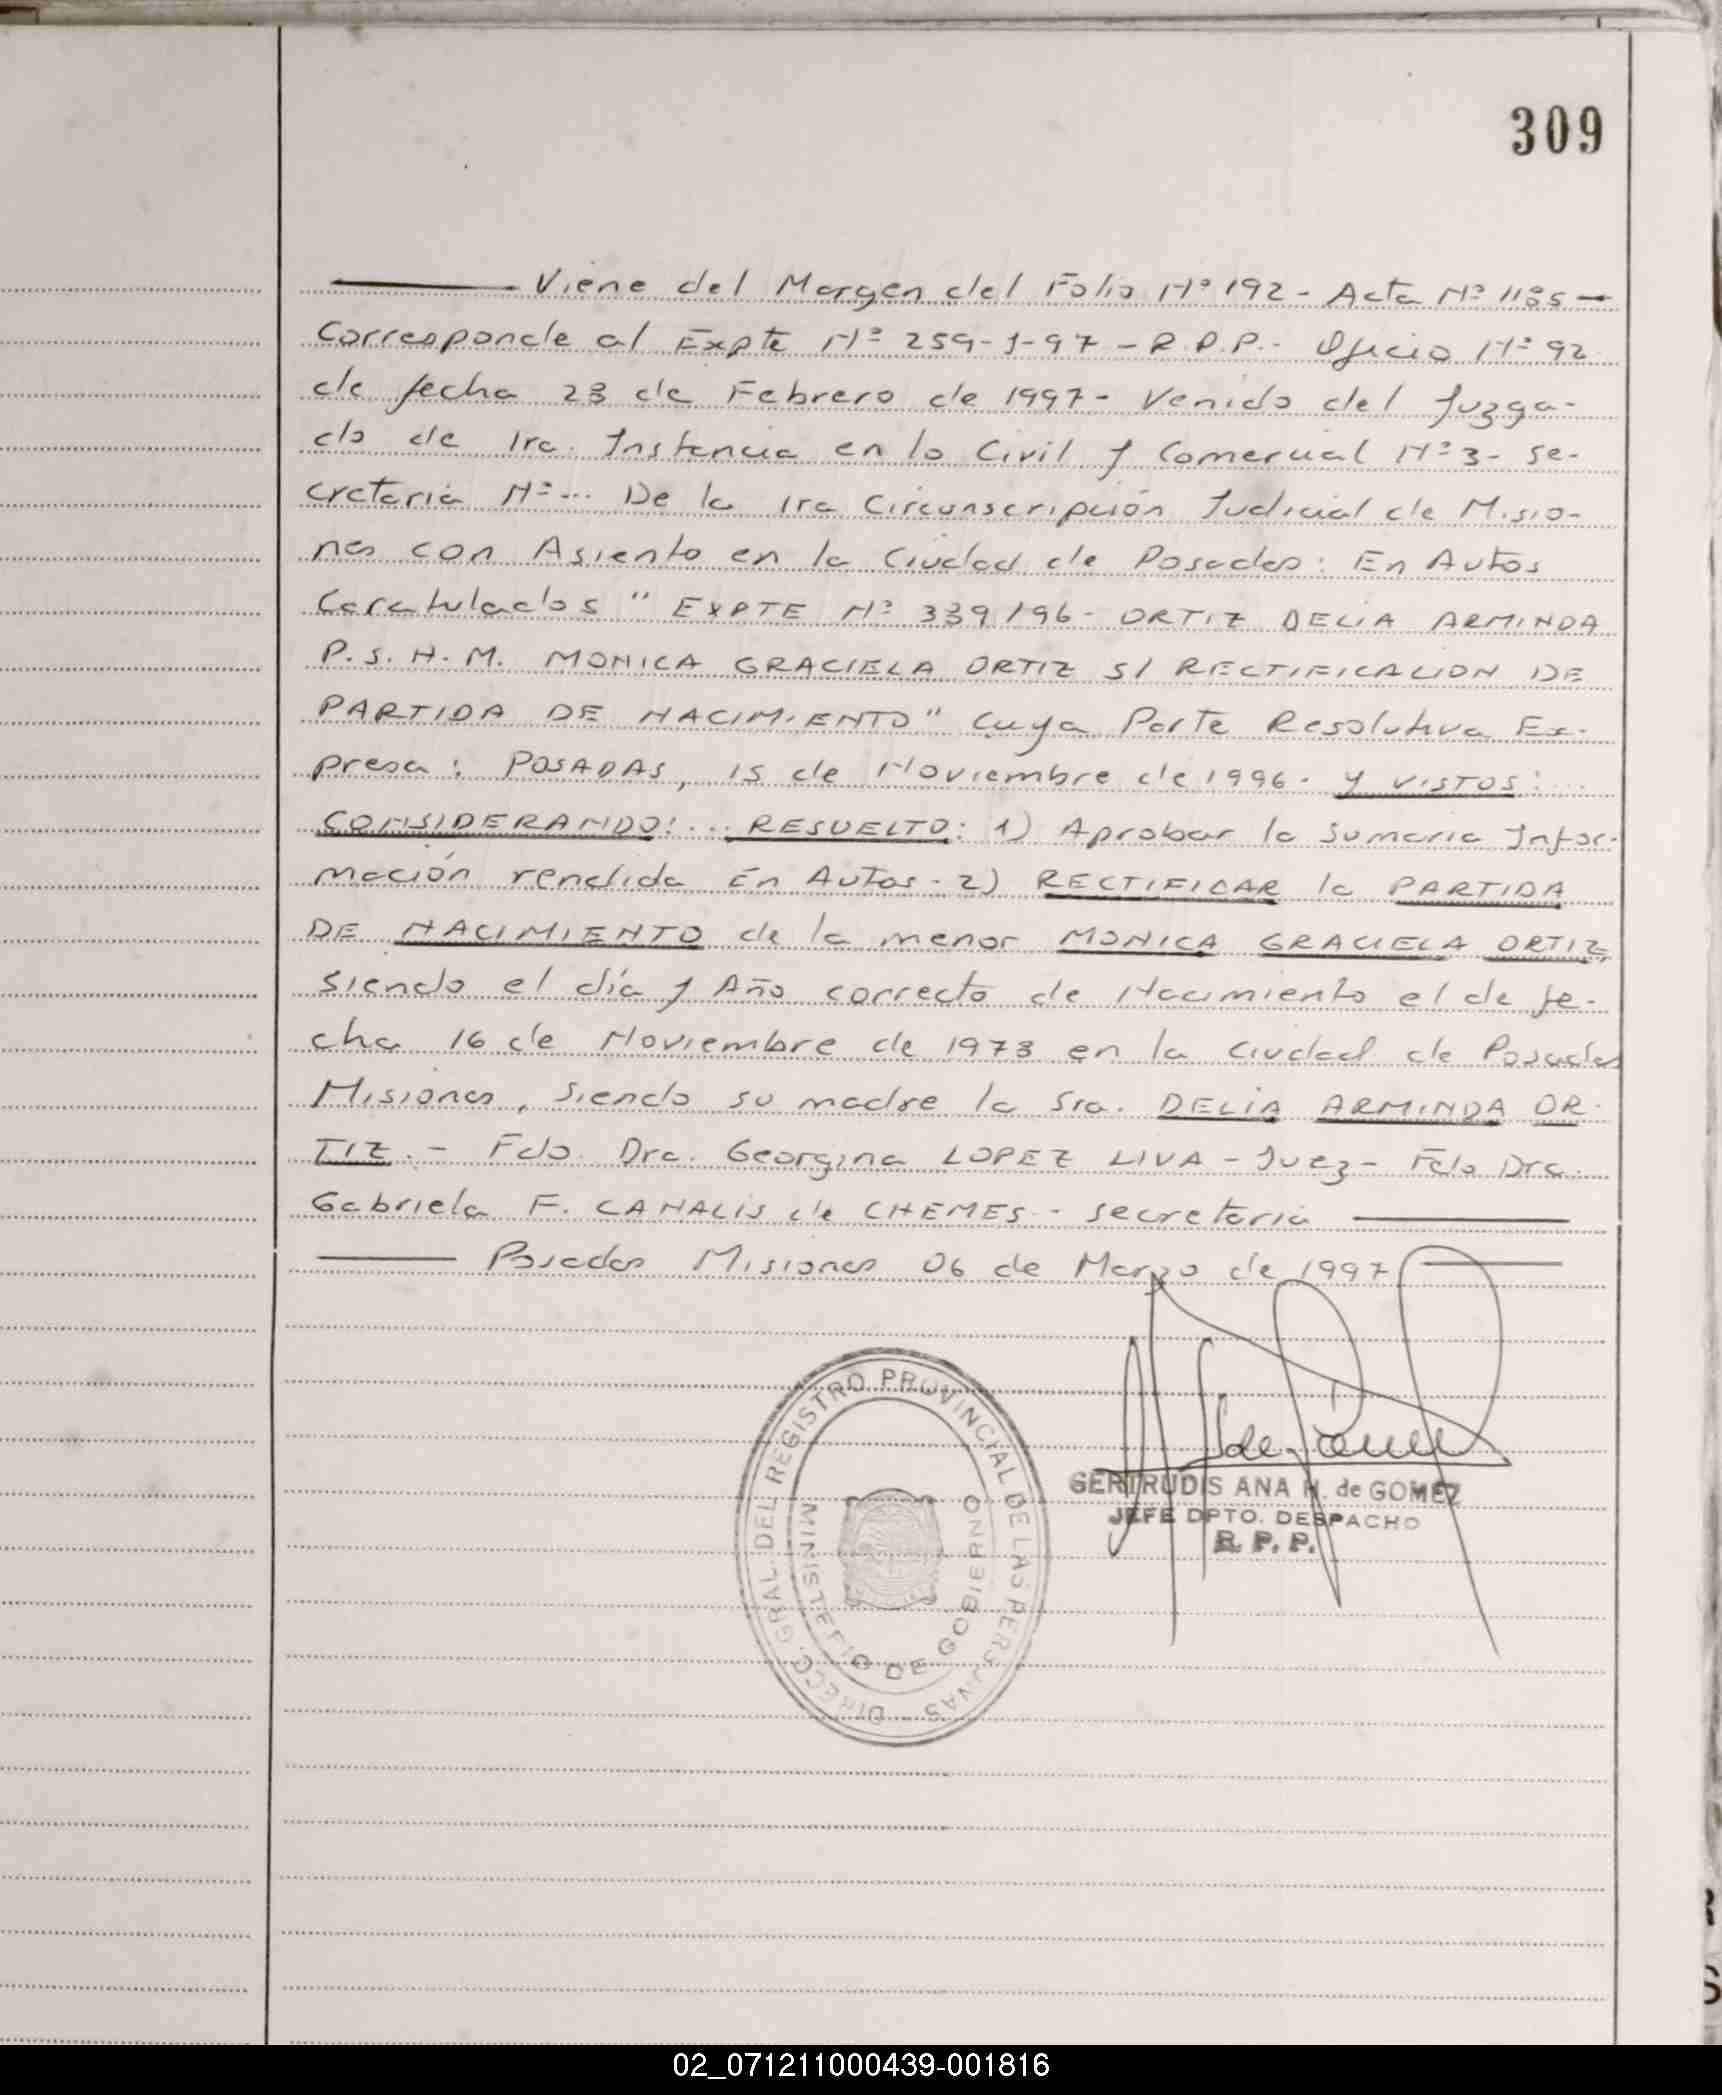 309
Viene del Margen del Folio Nº 192 - Acta Nº 1185 -
Corresponde al Expte Nº 259-J-97 - R.P.P.- Oficio Nº 92
de fecha 23 de Febrero de 1997- Venido del Juzga-
do de 1ra. Instancia en lo Civil y Comercial Nº 3- Se-
cretaria Nº... De la 1ra Circunscripción Judicial de Misio-
nes con Asiento en la Ciudad de Posadas: En Autos
Caratulados " EXPTE Nº 339/96- ORTIZ DELIA ARMINDA
P.S.H.M. MONICA GRACIELA ORTIZ S/ RECTIFICACION DE
PARTIDA DE NACIMIENTO" Cuya Parte Resolutiva Ex-
presa: POSADAS, 15 de Noviembre de 1996. Y VISTOS:...
CONSIDERANDO:... RESUELTO: 1) Aprobar la Sumaria Infor-
mación rendida En Autos. 2) RECTIFICAR la PARTIDA
DE NACIMIENTO de la menor MONICA GRACIELA ORTIZ,
siendo el día y Año correcto de Nacimiento el de fe-
cha 16 de Noviembre de 1973 en la Ciudad de Posadas
Misiones, siendo su madre la Sra. DELIA ARMINDA OR-
TIZ.- Fdo. Dra. Georgina LOPEZ LIVA - Juez- Fdo Dra.
Gabriela F. CANALIS de CHEMES - secretaria
Posadas Misiones 06 de Marzo de 1997
DIRECC. GRAL. DEL REGISTRO PROVINCIAL DE LAS PERSONAS
MINISTERIO DE GOBIERNO
GERTRUDIS ANA H. de GOMEZ
JEFE DPTO. DESPACHO
R. P. P.
02_071211000439-001816